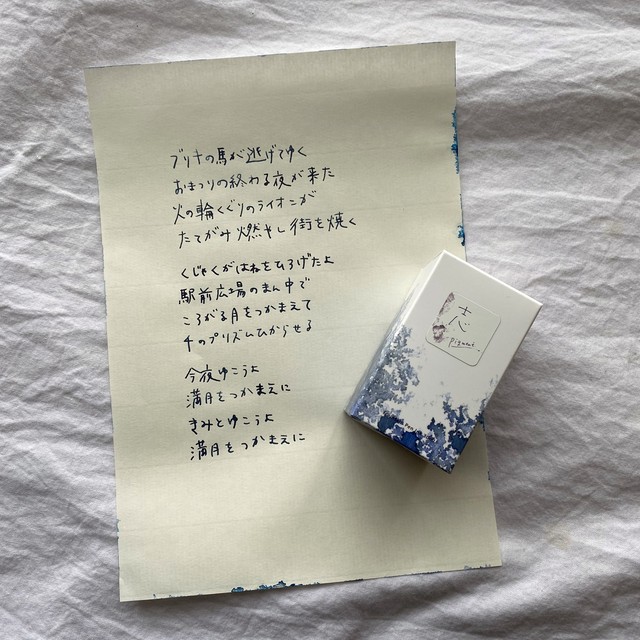 ブリキの馬が逃げてゆく
おまつりの終わる夜が来た
火の輪くぐりのライオンが
たてがみ燃やし街を焼く
くじゃくがはねをひろげたよ
駅前広場のまん中で
ころがる月をつかまえて
千のプリズムひからせる
今夜ゆこうよ
満月をつかまえに
きみとゆこうよ
満月をつかまえに
志
pigment.